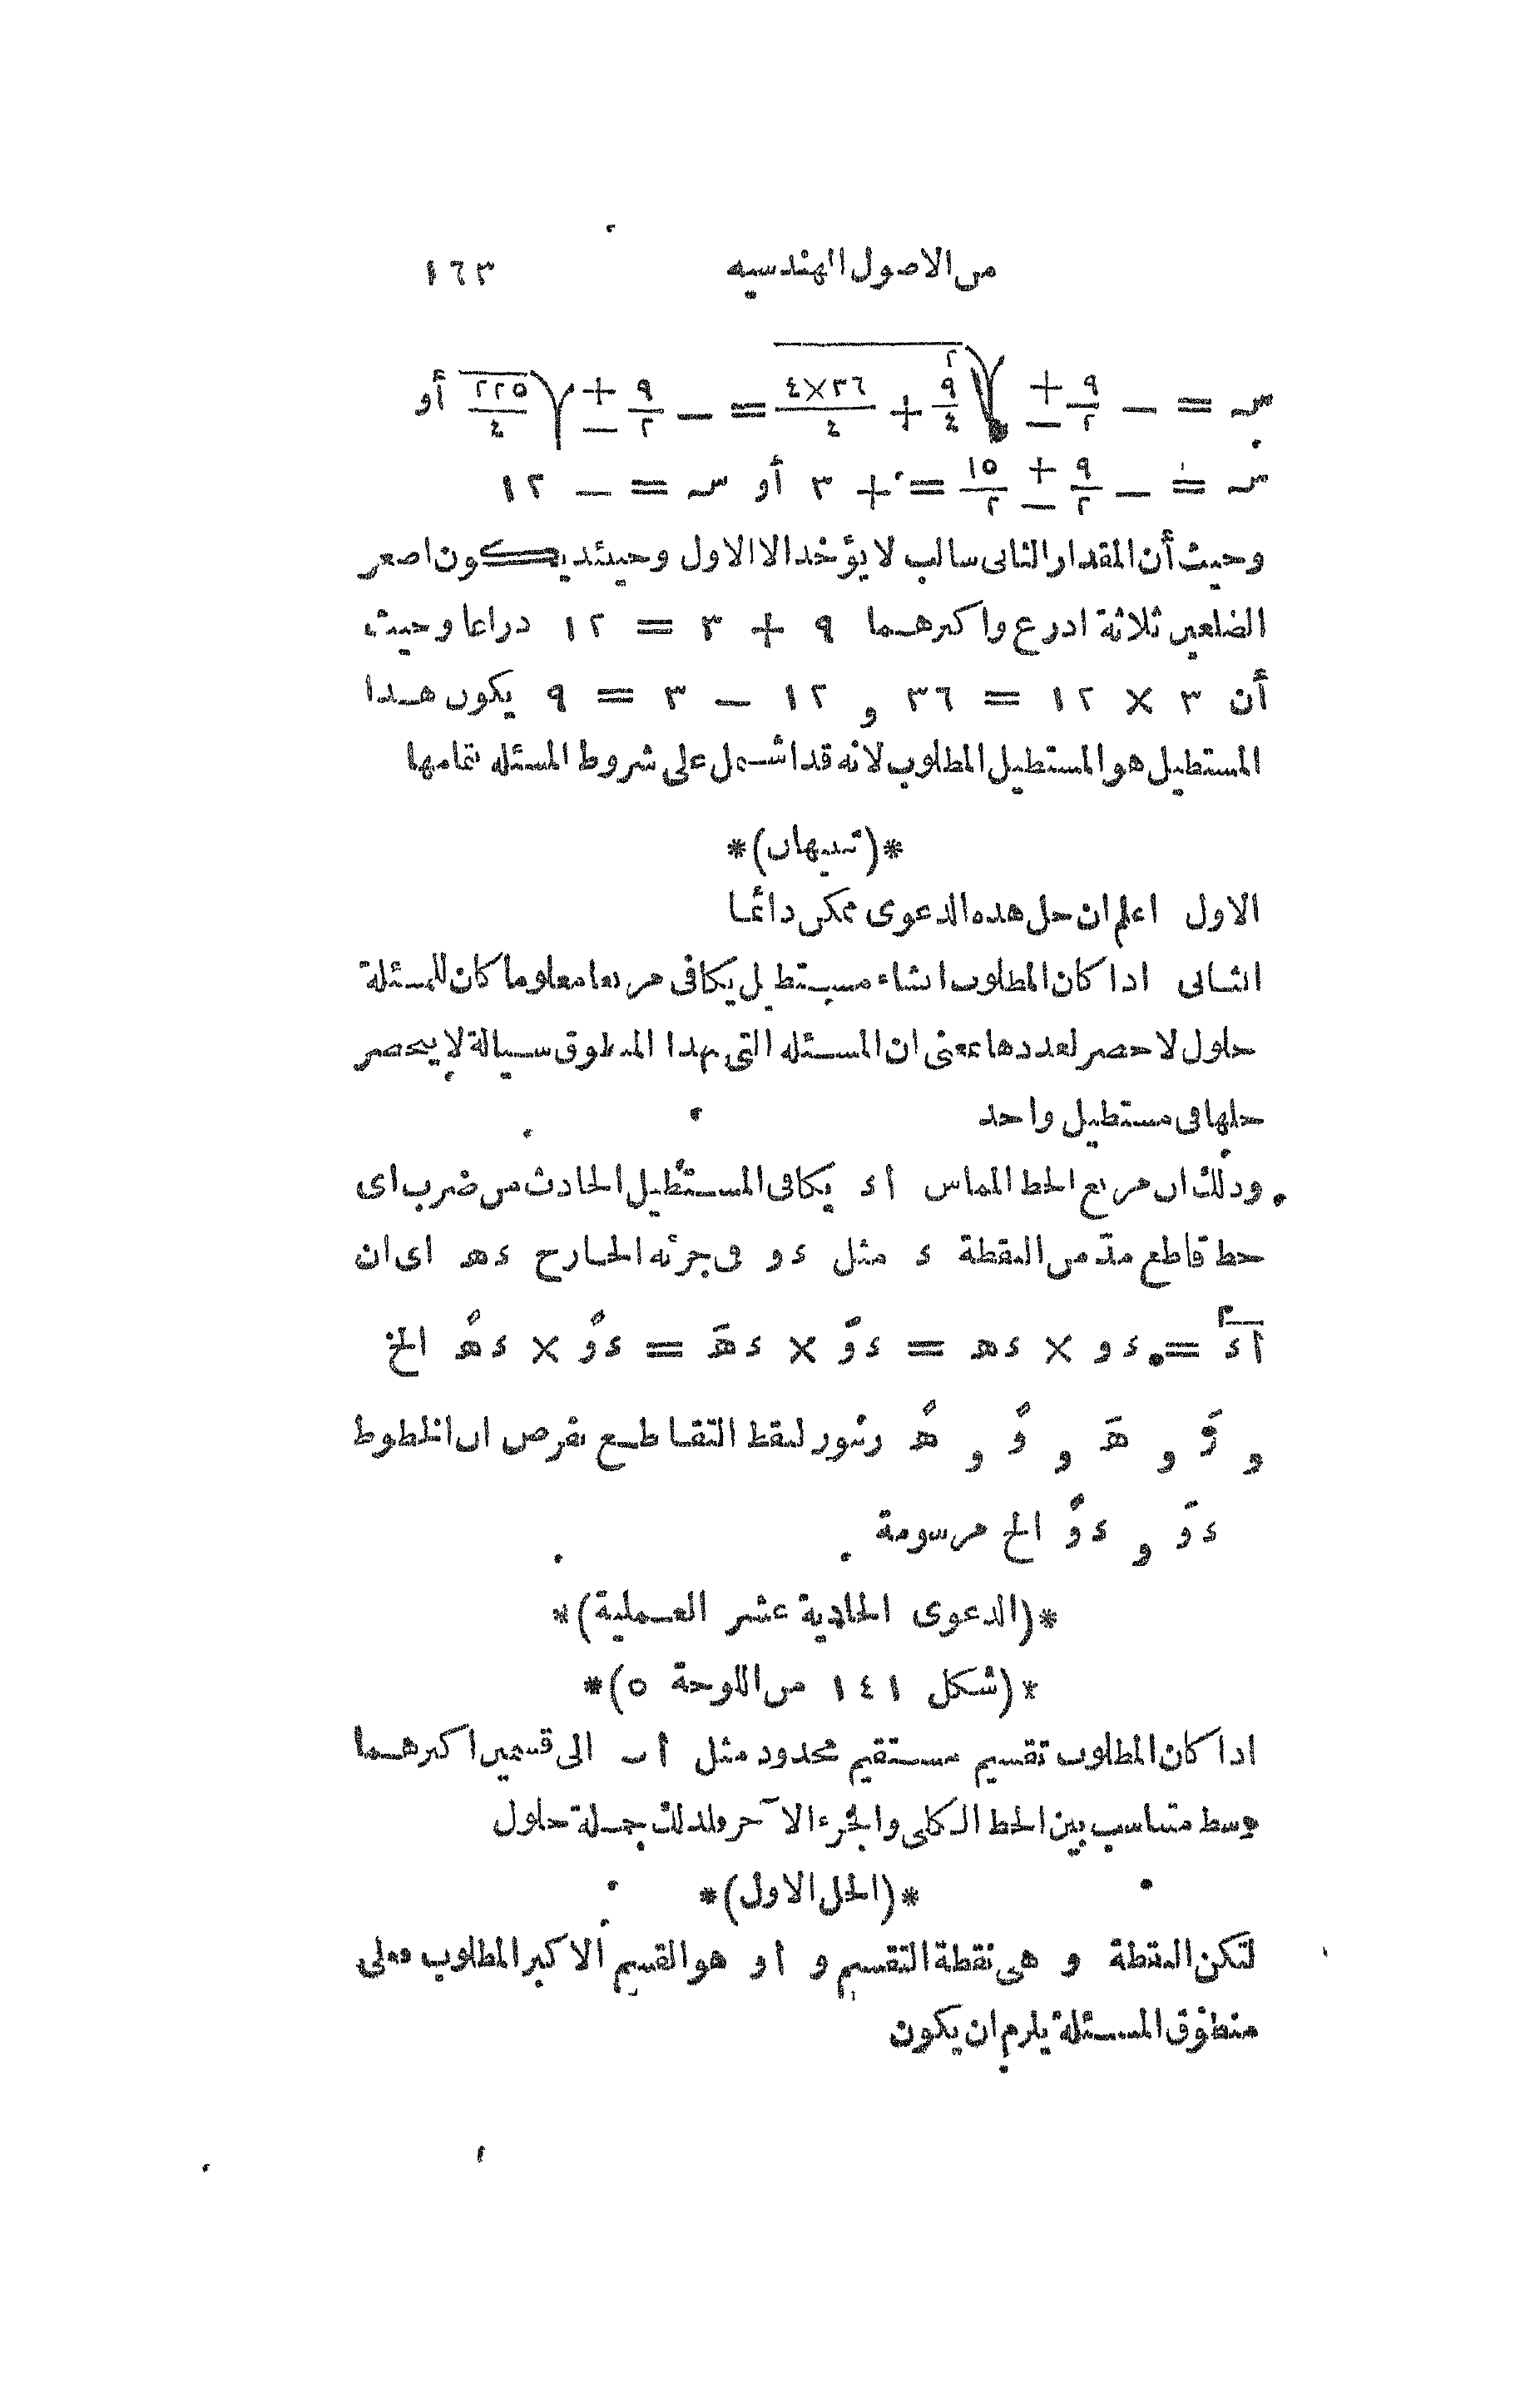 من الاصول الهندسيه ١٦٣
سـ = − ٩/٢ ± √(٩²/٤ + ٣٦×٤/٤) = − ٩/٢ ± √(٢٢٥/٤) أو
سـ = − ٩/٢ ± ١٥/٢ = + ٣ أو سـ = − ١٢
وحيث أن المقدار الثانى سالب لا يؤخذ الا الاول وحينئذ يكون اصغر
الضلعين ثلاثة اذرع واكبرهما ٩ + ٣ = ١٢ ذراعا وحيث
أن ٣ × ١٢ = ٣٦ و ١٢ − ٣ = ٩ يكون هذا
المستطيل هو المستطيل المطلوب لانه قد اشتمل على شروط المسئله بتمامها
*(تنبيهان)*
الاول اعلم ان حل هذه الدعوى ممكن دائما
الثانى اذا كان المطلوب انشاء مستطيل يكافئ مربعا معلوما كان للمسئلة
حلول لا حصر لعددها بمعنى ان المسئله التى بهذا المنطوق سيالة لا ينحصر
حلها فى مستطيل واحد
وذلك ان مربع الخط المماس أ ء يكافئ المستطيل الحادث من ضرب اى
خط قاطع مدّ من النقطة ء مثل ء و فى جزئه الخارج ء هـ اى ان
أ ء² = ء و × ء هـ = ء وَ × ء هَـ = ء وً × ء هًـ الخ
و وَ و هَـ و وً و هًـ رموز لنقط التقاطع بفرض ان الخطوط
ء وَ و ء وً الخ مرسومة
*(الدعوى الحادية عشر العملية)*
*(شكل ١٤١ من اللوحة ٥)*
اذا كان المطلوب تقسيم مستقيم محدود مثل أ ب الى قسمين اكبرهما
وسط متناسب بين الخط الكلى والجزء الآخر فلذلك جملة حلول
*(الحل الاول)*
لتكن النقطة و هى نقطة التقسيم و أ و هو القسم الاكبر المطلوب فعلى
منطوق المسئلة يلزم ان يكون